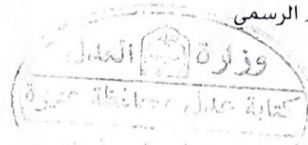 . الرسمي
وزارة العدل
كتابة عدل محافظة عنيزة